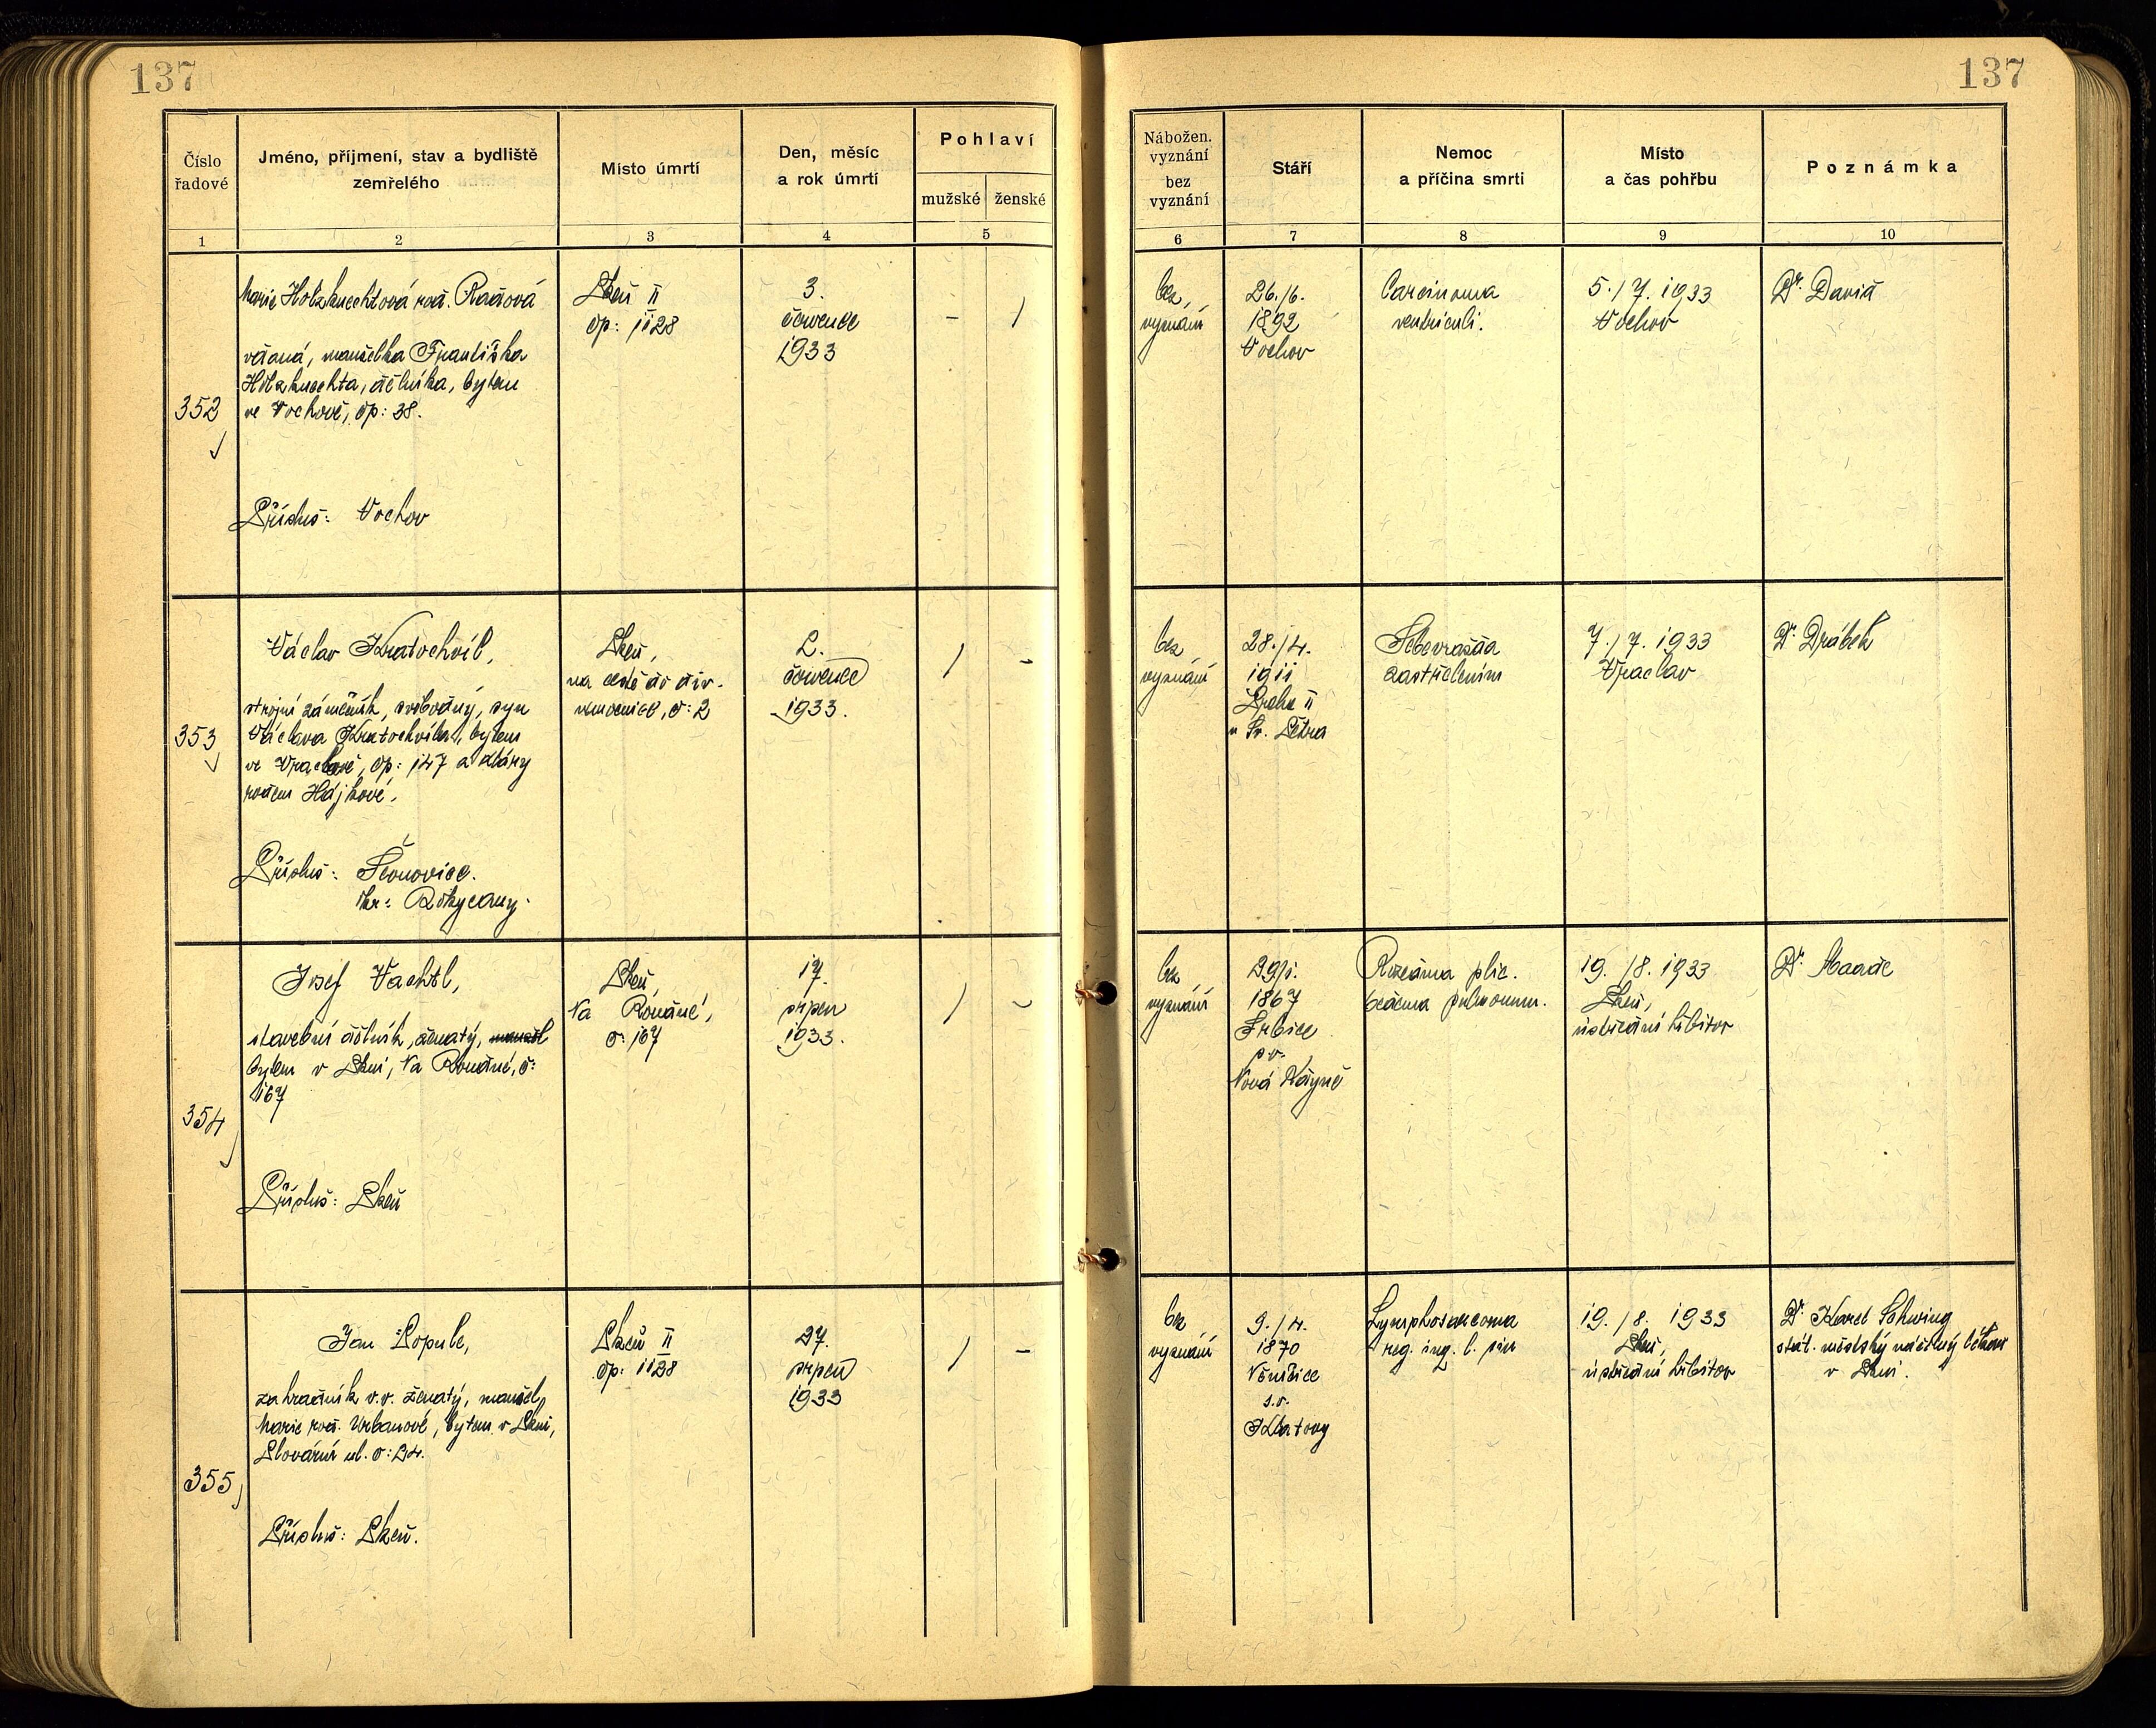 137
Číslo
řadové
Jméno, příjmení, stav a bydliště
zemřelého
Místo úmrtí
Den, měsíc
a rok úmrtí
Pohlaví
mužské
ženské
1
2
3
4
5
352
Marie Holzknechtová roz. Radová
vdaná, manželka Františka
Holzknechta, dělníka, bytem
ve Vochově, čp: 38.
Přísluš: Vochov
Plzeň II
čp: 1128
3.
července
1933
-
/
353
Václav Kratochvíl,
strojní zámečník, svobodný, syn
Václava Kratochvíla, bytem
ve Vraclavě, čp: 147 a Kláry
rozené Hájkové.
Přísluš:
okr: Rokycany.
Plzeň,
na cestě do div.
nemocnice, č: 2
2.
července
1933.
/
-
354
Josef Wachtl,
stavební dělník, ženatý, manžel
bytem v Plzni, Na Roudné, č:
167
Přísluš: Plzeň
Plzeň,
Na Roudné,
č: 167
17.
srpen
1933.
/
-
355
Jan Popule,
zahradník v.v. ženatý, manžel
Marie roz. Urbanové, bytem v Plzni,
Plovární ul. č: 24.
Přísluš: Plzeň.
Plzeň II
čp: 1128
27.
srpen
1933
/
-
137
Nábožen.
vyznání
bez
vyznání
Stáří
Nemoc
a příčina smrti
Místo
a čas pohřbu
Poznámka
6
7
8
9
10
bez
vyznání
26./6.
1892
Vochov
Carcinoma
ventriculi.
5./7. 1933
Vochov
Dr. David
bez
vyznání
28./4.
1911
Praha II
u Sv. Petra
Sebevražda
zastřelením
7./7. 1933
Vraclav
Dr. Drábek
bez
vyznání
29/1.
1867
Srbice
p.v.
Nová
Rozedma plic.
oedema pulmonum.
19./8. 1933
Plzeň,
ústřední hřbitov
Dr.
bez
vyznání
9./4.
1870
s.o.
Klatovy
Lymphosarcoma
reg. ing. l. sin
19./8. 1933
Plzeň,
ústřední hřbitov
Dr. Karel Schwing
stát. městský náčelný lékař
v Plzni.